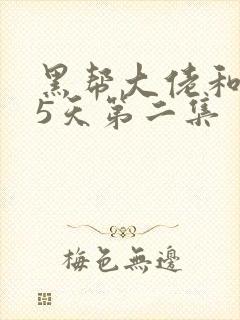 黑帮大佬和
5天第二集
梅色無邊